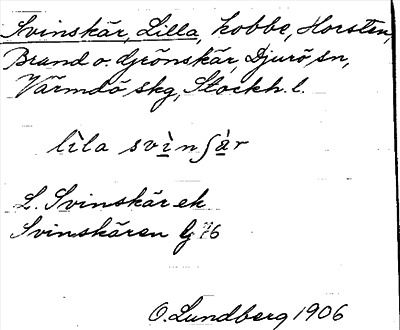 Svinskär, Lilla, kobbe, Horsten,
Brand o. Grönskär, Djurö sn,
Värmdö skg, Stockh. l.
lìla svìnʃàr
L. Svinskär ek
Svinskären
O. Lundberg 1906